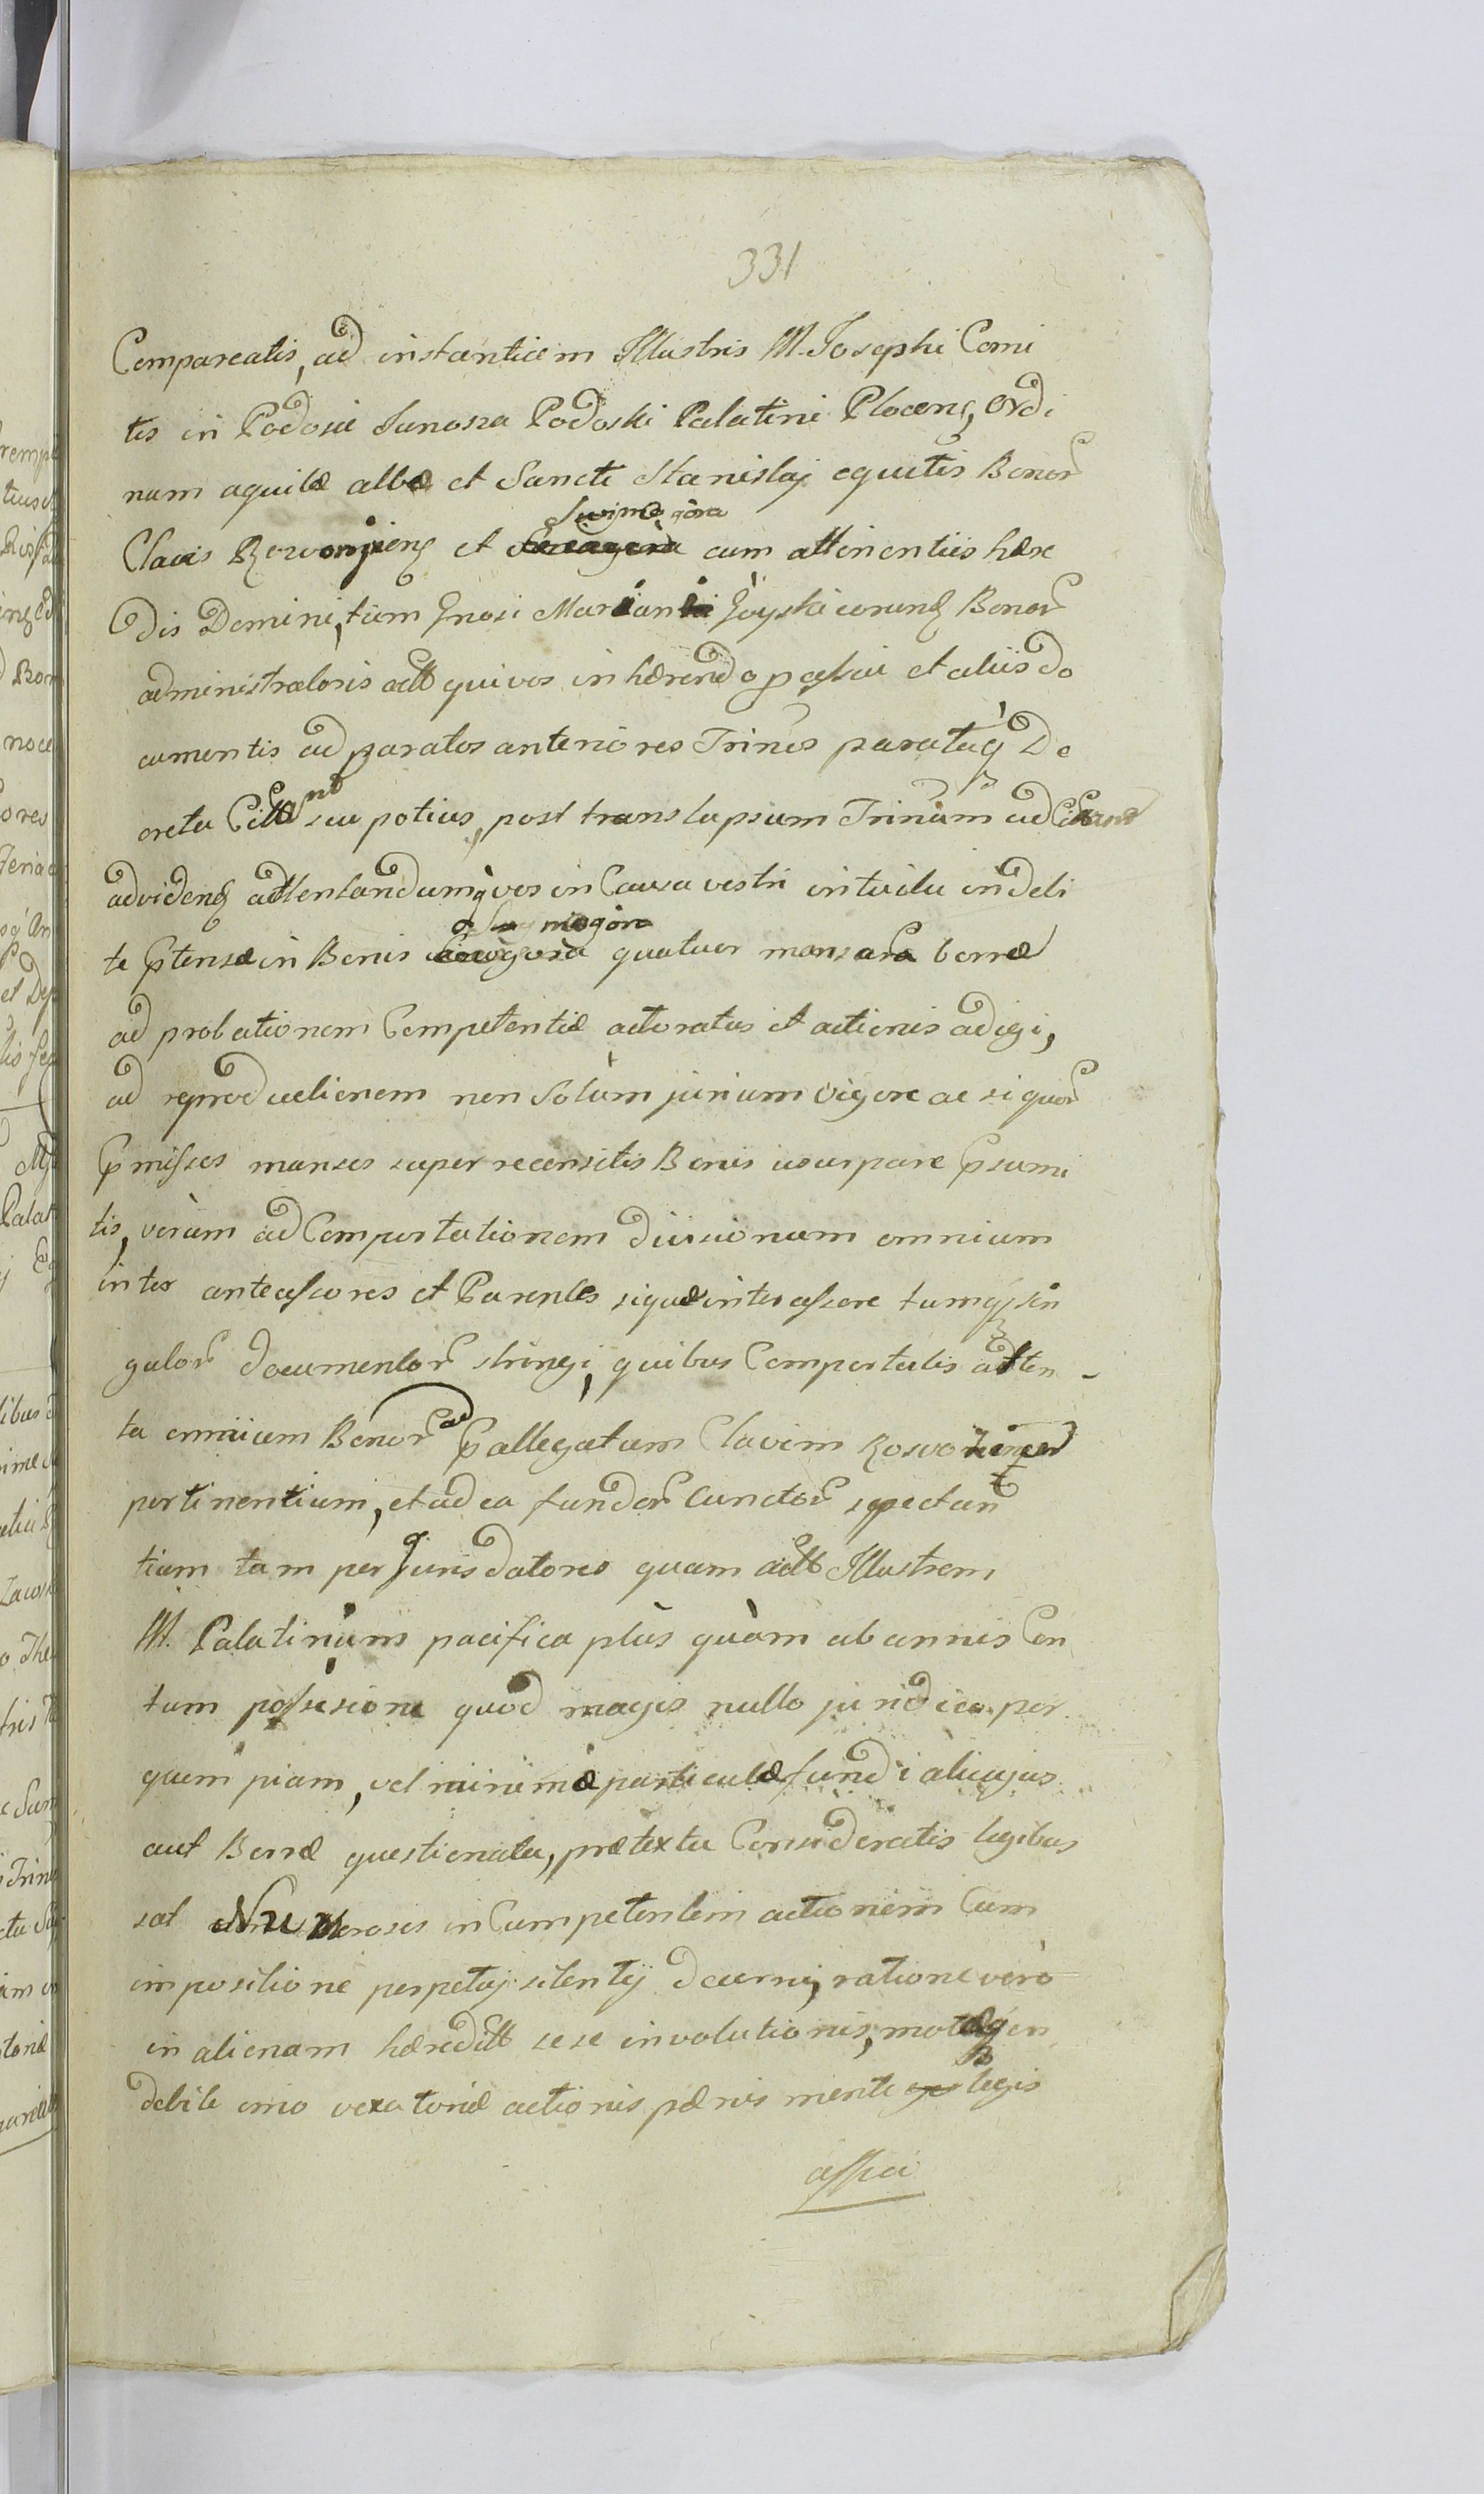 331
Compareatis, ad instantiam Illustris M. Josephi Comi
tis in Podosie Junosza Podoski Palatini Plocenę, Ordi
num aquilæ albæ et Sancti Stanislaj equitis Bonor
Suimęgóra
Clavis et cum attinentiis hære
dis Domini, tum Gnosi Mariani Gòyski eorund Bonor
administratoris actt qui vos inhærendo et aliis do
cumentis ad paratos anteriores Trinos paratuq̀ De
creta seu potius, post translapsum Trinum ad
advidenę attentandumq̀ vos in Causa vestri intuitu indebi
te ptensæ in Bonis quatuor mansar borræ
ad probationem Competentiæ actoratus et actionis adigi,
ad reproductionem non Solùm jurium vigore ac si quor
pmissos mansos super recensitis Bonis usurpare psumi
tis, verùm ad Comportationem divisionum omnium
inter antecessores et Parentes siquæ intercessere tumq̀ sin
gulor documentor stringi, quibus Comportatis atten-
ta omnium Bonor ad pallegatam Clavim
pertinentium, et ad ea fundor Cunctor spectan
tium tam per Juris datores quam actt Illustrem
M. Palatinum pacifica plùs quàm ab annis Cen
tum possesione quod magis nullo juridice per
quempiam, vel minimæ particulæ fundi alicujus
aut Borræ questionata, prætextu Consideratis legibus
sat Numerosis inCumpetentem actionem Cum
impositione perpetuj silentij decerni, ratione verò
in alienam hæreditt sese involutionis, motæq̀ in
debite imo vexatoriæ actionis pænis mente legis
affici